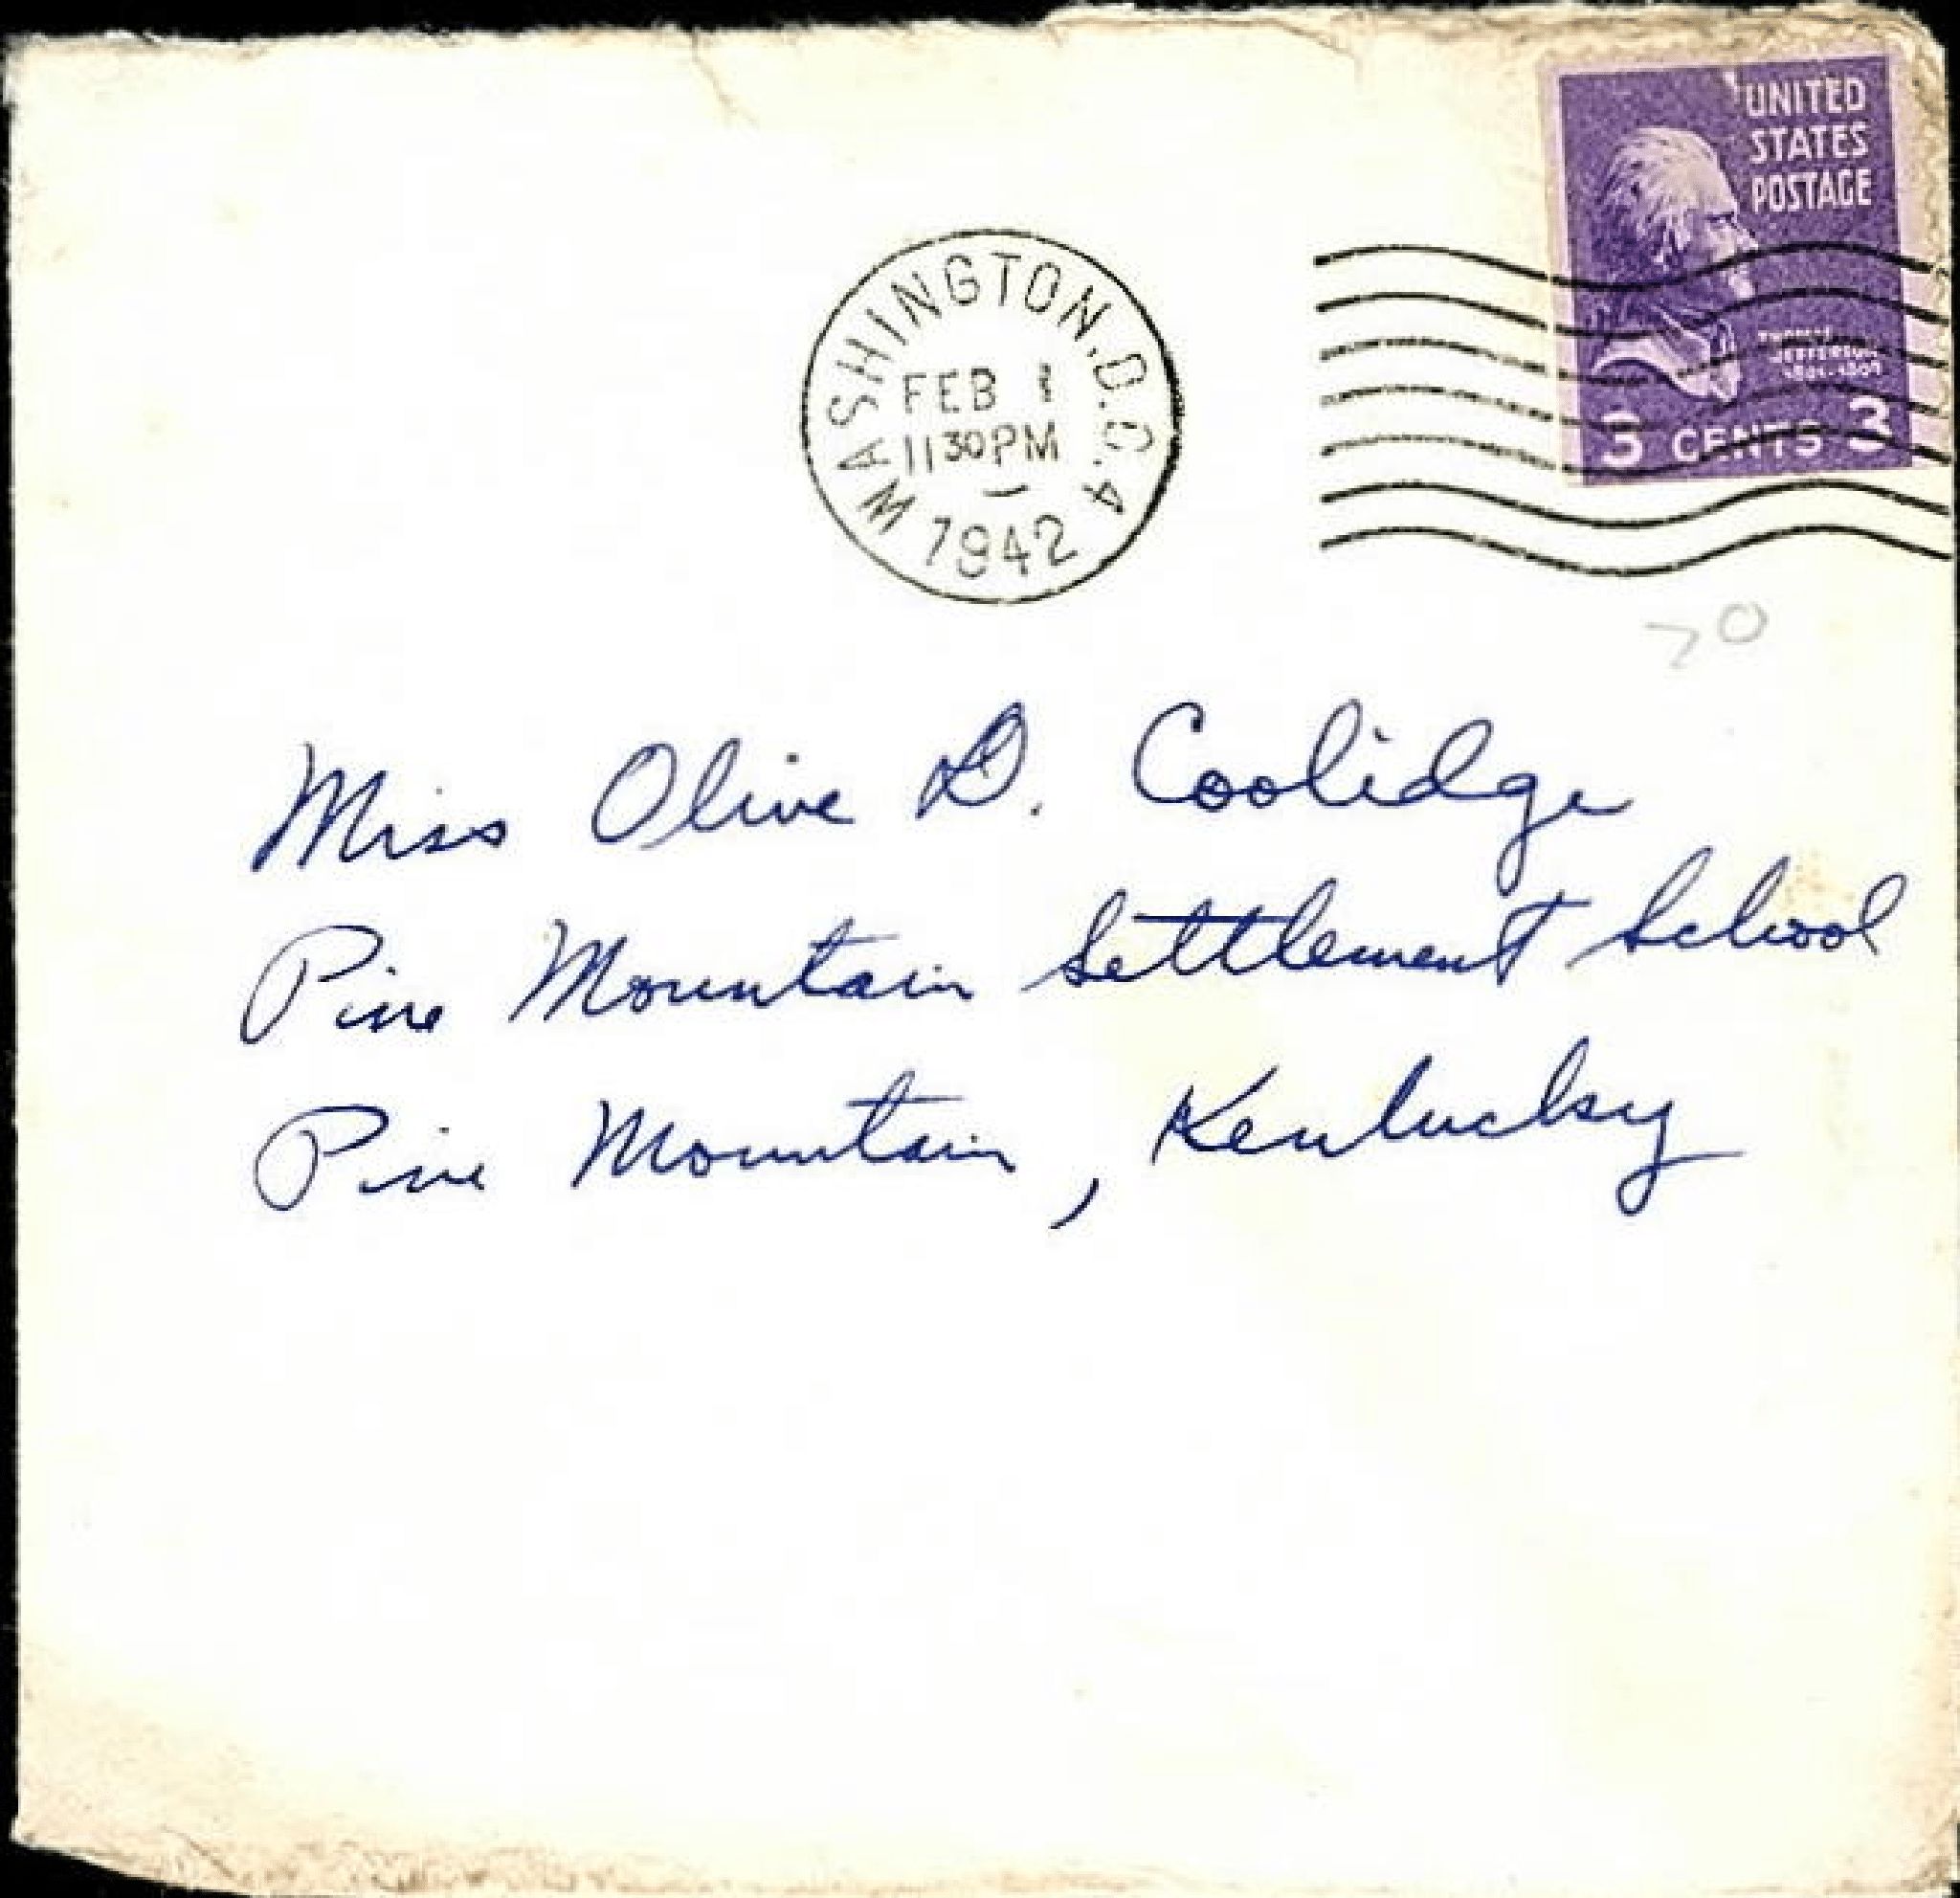 UNITED
STATES
POSTAGE
THOMAS
JEFFERSON
1801-1809
3 CENTS 3
WASHINGTON.D.C.4
FEB 1
1130PM
1942
70
Miss Olive D. Coolidge
Pine Mountain Settlement School
Pine Mountain, Kentucky